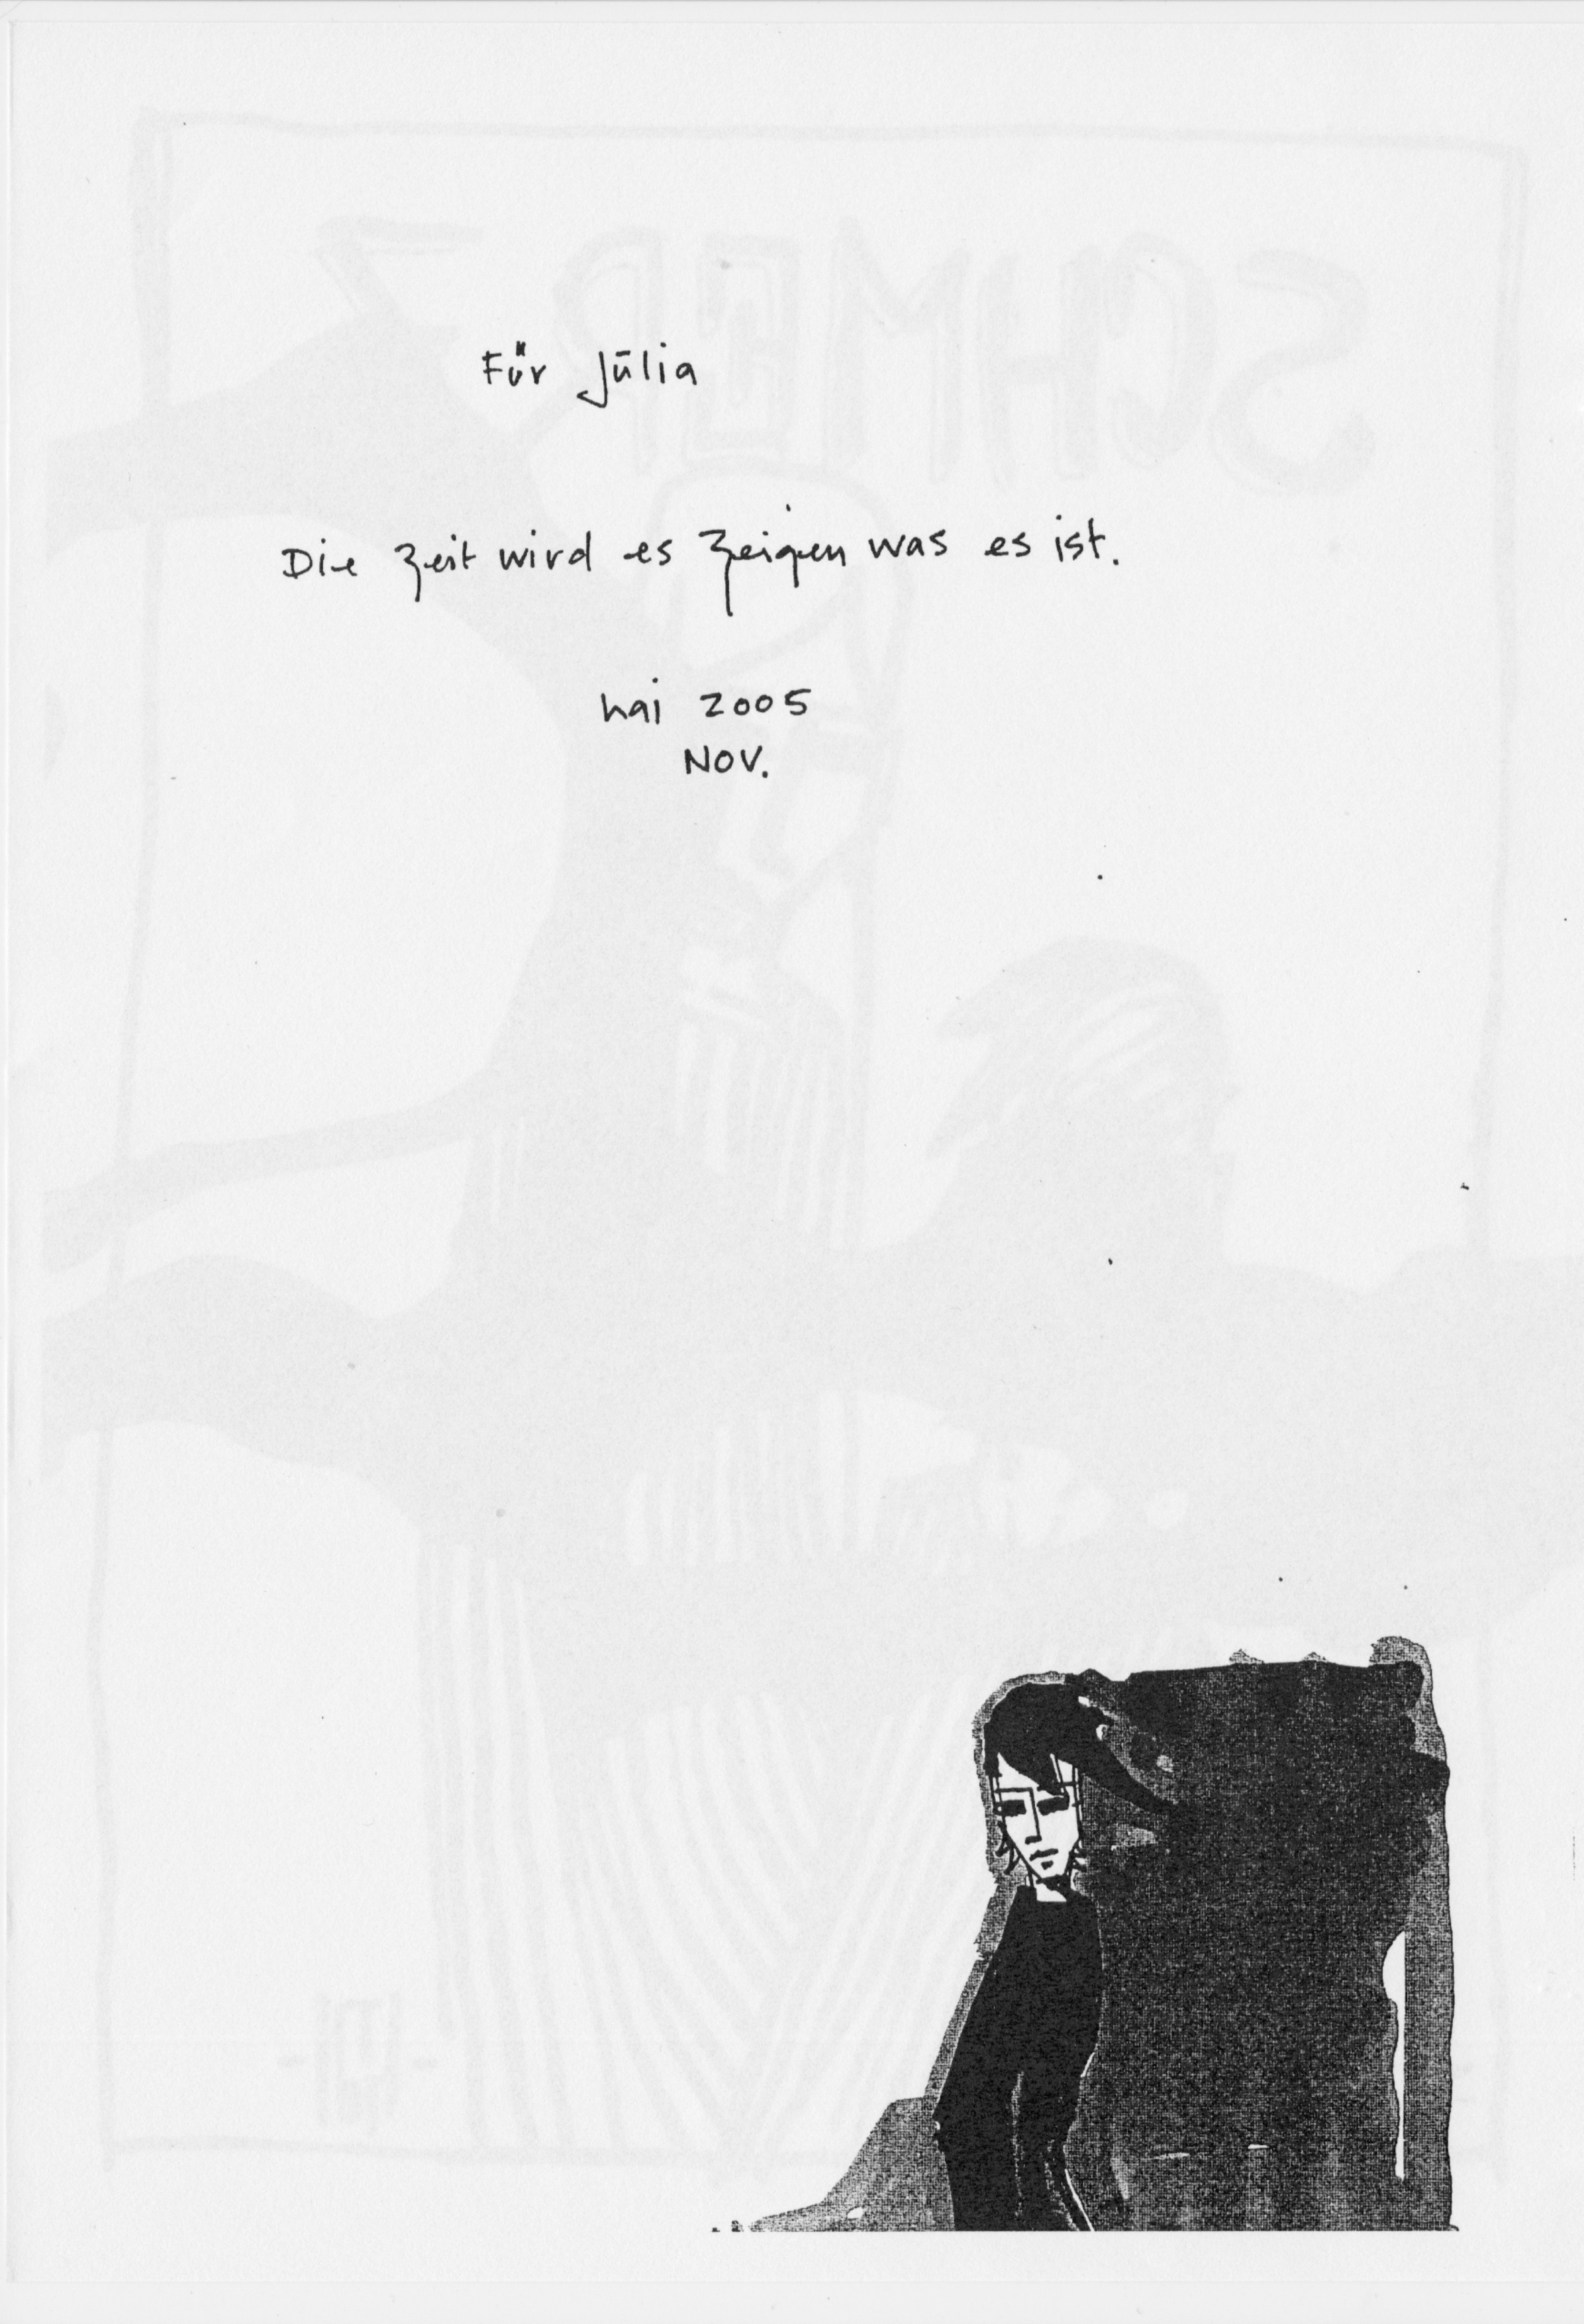 Für Jūlia
Die Zeit wird es zeigen was es ist.
hai 2005
NOV.
SCHMERZ